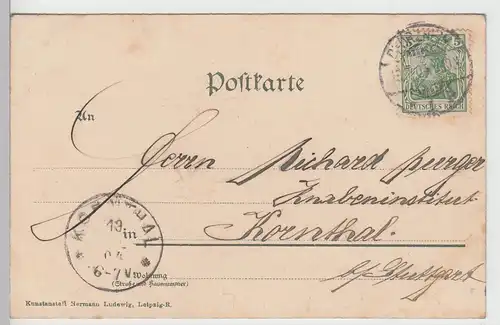 5
DEUTSCHES REICH
Postkarte
An
Herrn Richard Burger
Knabeninstitut
in Kornthal.
b/ Stuttgart
KORNTHAL
19.
04
6-7V
Wohnung
(Straße und Hausnummer)
Kunstanstalt Hermann Ludewig, Leipzig-R.